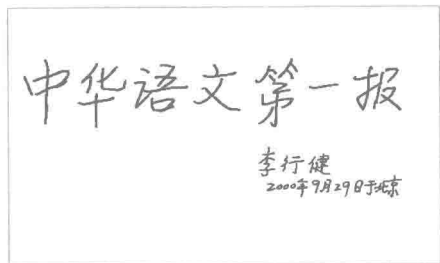 中华语文第一报
李行健
2000年9月29日于北京